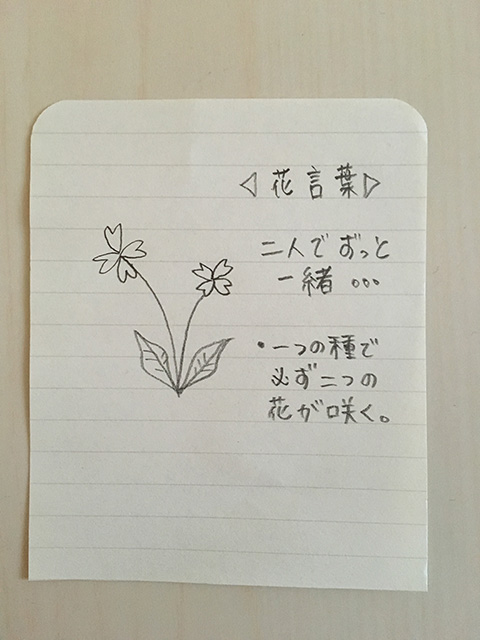 ◁花言葉▷
二人でずっと
一緒...
・一つの種で
必ず二つの
花が咲く。